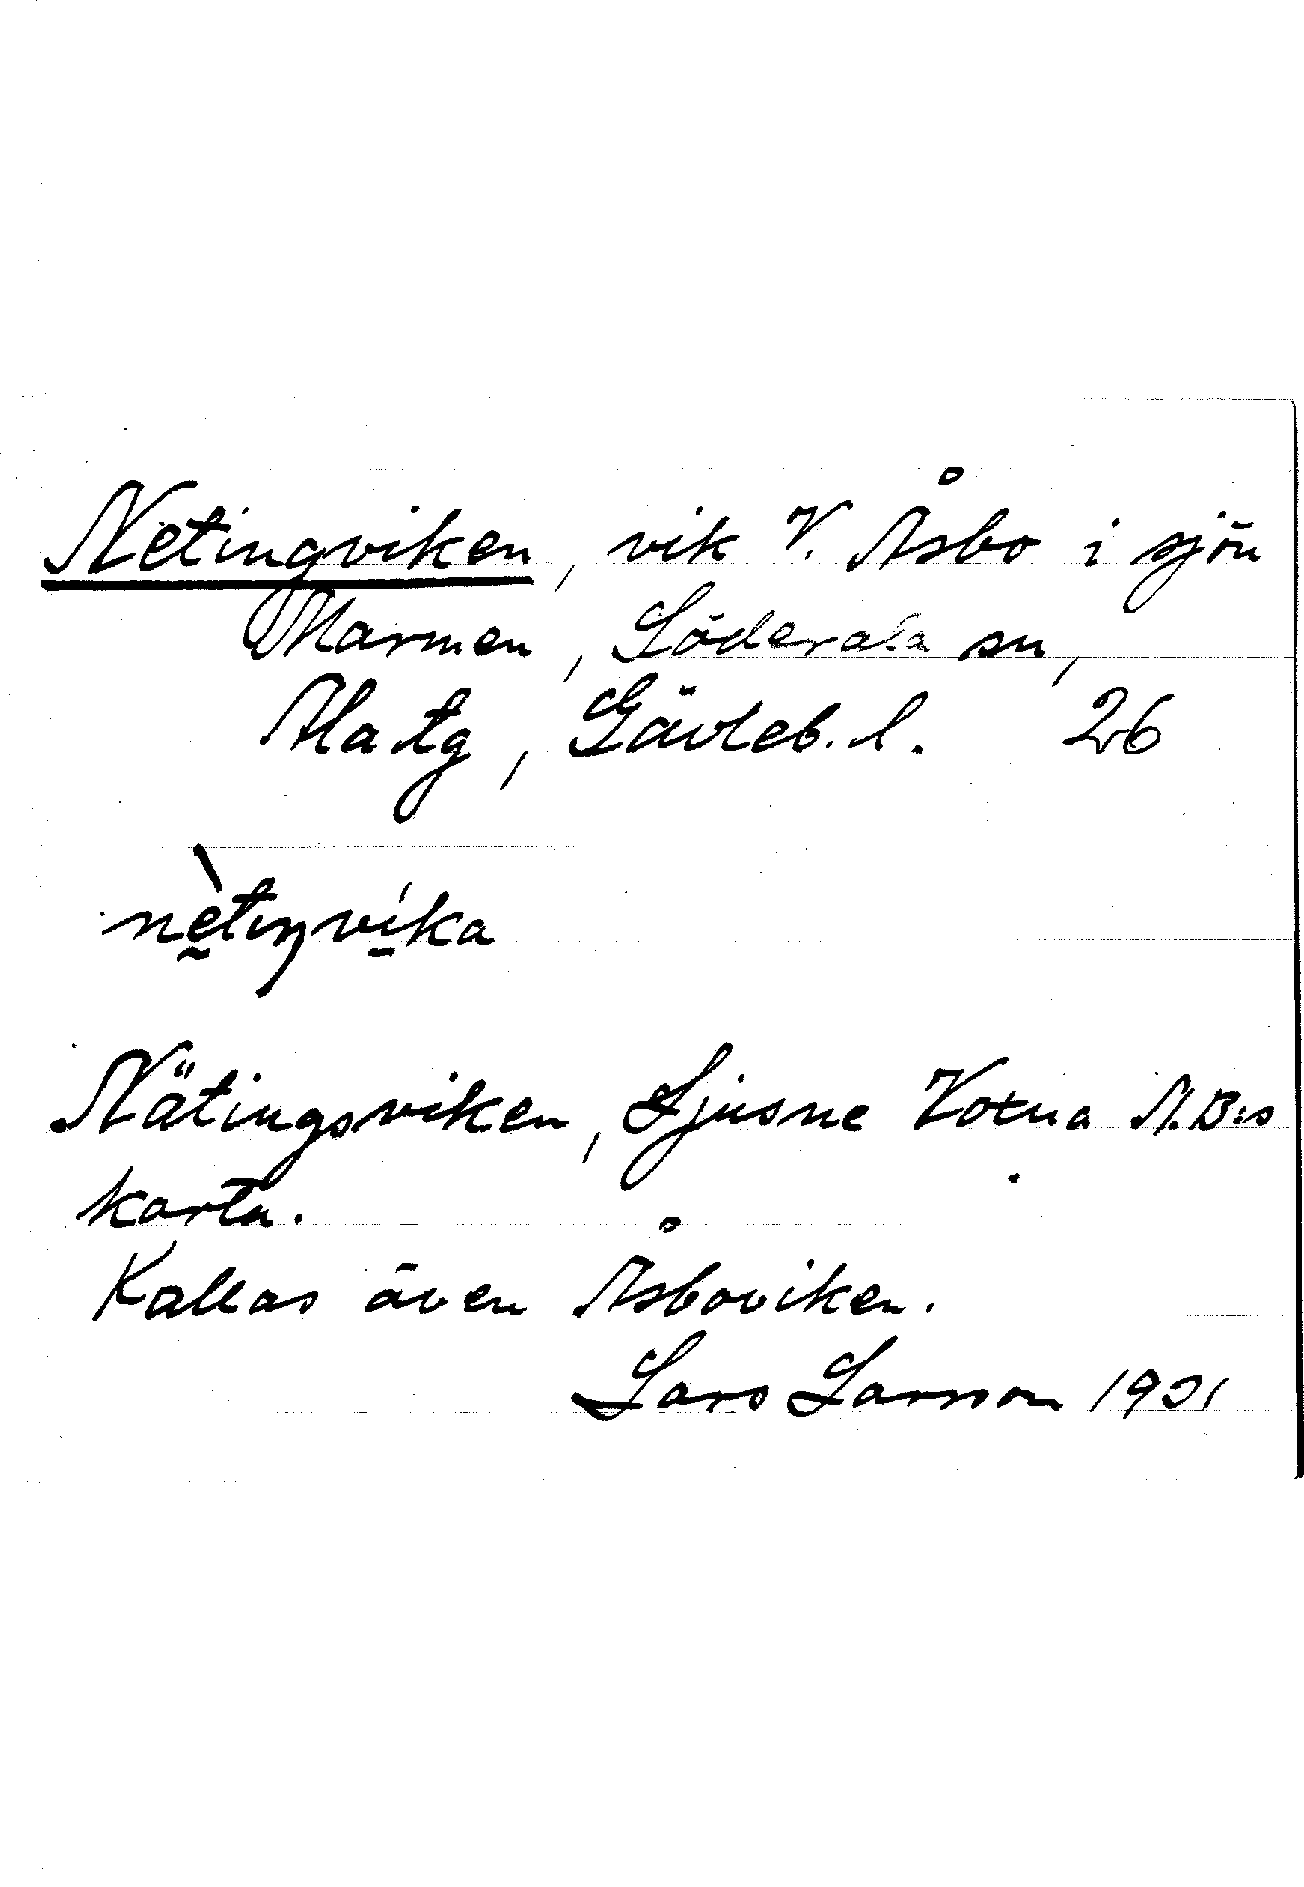 Netingviken, vik V. Åsbo i sjön
Marmen, Söderala sn,
Ala tg, Gävleb. l. 26
nètiŋvíka
Nätingsviken, Ljusne Voxna A.B:s
karta.
Kallas även Åsboviken.
Lars Larsson 1931